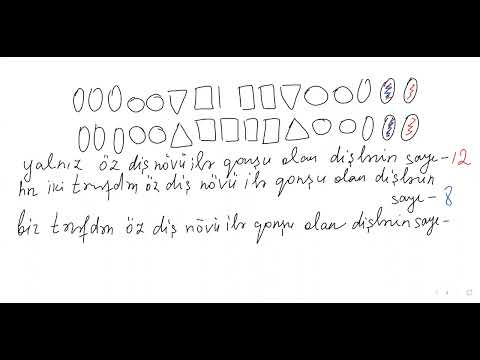 yalnız öz diş növü ilə qonşu olan dişlərin sayı-12
hər iki tərəfdən öz diş növü ilə qonşu olan dişlərin
sayı- 8
bir tərəfdən öz diş növü ilə qonşu olan dişlərin sayı-